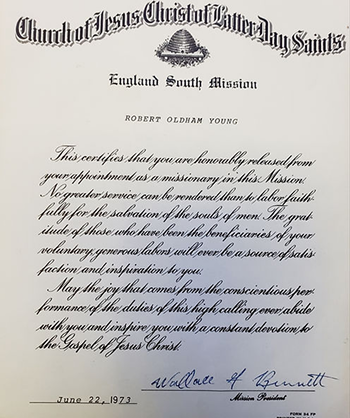 Church of Jesus Christ of Latter Day Saints
England South Mission
ROBERT OLDHAM YOUNG
This certifies that you are honorably released from
your appointment as a missionary in this Mission.
No greater service can be rendered than to labor faith-
fully for the salvation of the souls of men. The grat-
itude of those who have been the beneficiaries of your
voluntary, generous labors will ever be a source of satis-
faction and inspiration to you.
May the joy that comes from the conscientious per-
formance of the duties of this high calling ever abide
with you and inspire you with a constant devotion to
the Gospel of Jesus Christ.
Wallace H Bennett
June 22, 1973
Mission President
FORM 94 FP